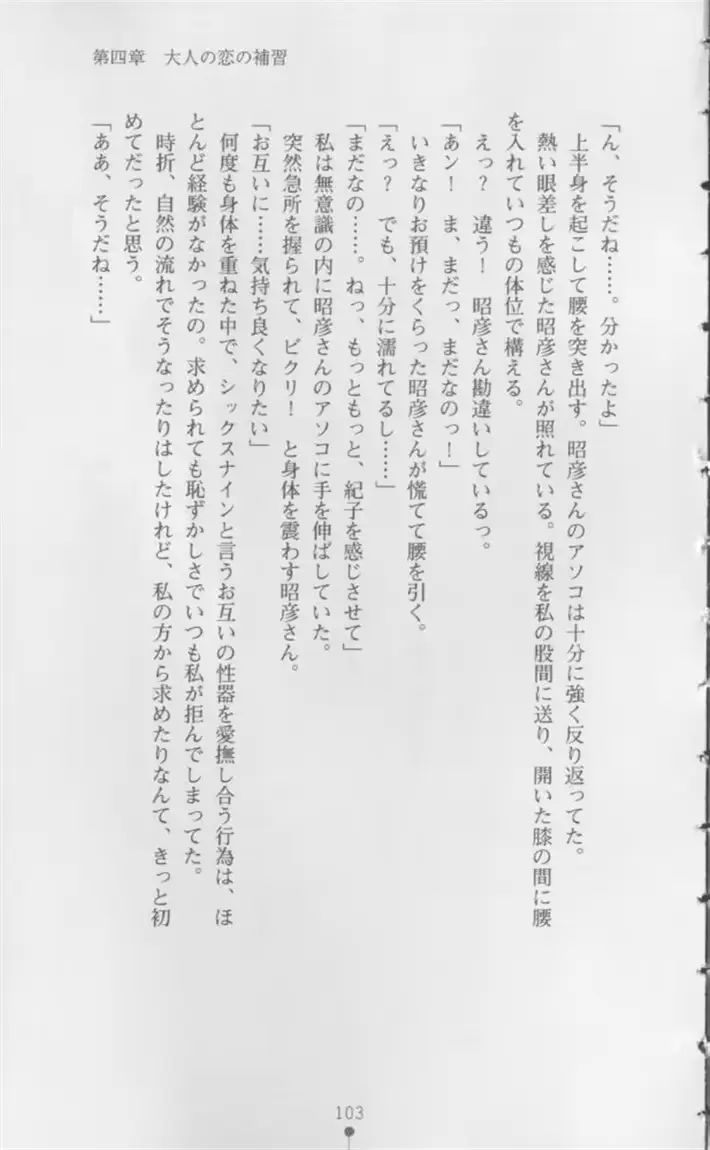 第四章　大人の恋の補習
「ん、そうだね……。分かったよ」
　上半身を起こして腰を突き出す。昭彦さんのアソコは十分に強く反り返ってた。
　熱い眼差しを感じた昭彦さんが照れている。視線を私の股間に送り、開いた膝の間に腰
を入れていつもの体位で構える。
　えっ？　違う！　昭彦さん勘違いしているっ。
「あン！　ま、まだっ、まだなのっ！」
　いきなりお預けをくらった昭彦さんが慌てて腰を引く。
「えっ？　でも、十分に濡れてるし……」
「まだなの……。ねっ、もっともっと、紀子を感じさせて」
　私は無意識の内に昭彦さんのアソコに手を伸ばしていた。
　突然急所を握られて、ビクリ！　と身体を震わす昭彦さん。
「お互いに……気持ち良くなりたい」
　何度も身体を重ねた中で、シックスナインと言うお互いの性器を愛撫し合う行為は、ほ
とんど経験がなかったの。求められても恥ずかしさでいつも私が拒んでしまってた。
　時折、自然の流れでそうなったりはしたけれど、私の方から求めたりなんて、きっと初
めてだったと思う。
「ああ、そうだね……」
103